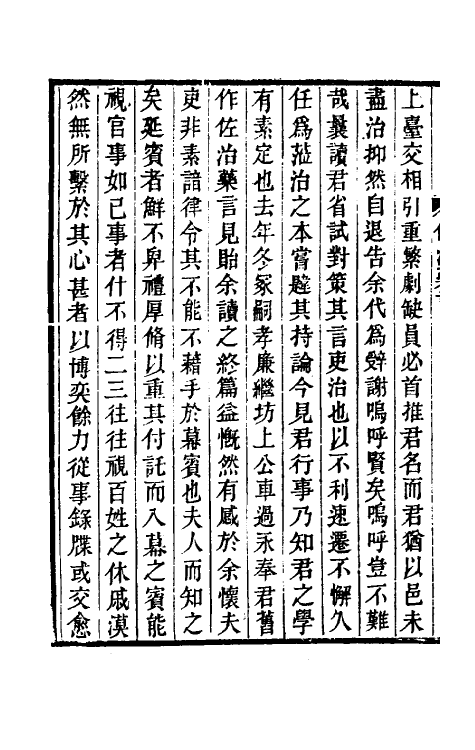 上臺交相引重繁劇缺員必首推君名而君猶以邑未
盡治抑然自退告余代爲辤謝嗚呼賢矣嗚呼豈不難
哉曩讀君省試對策其言吏治也以不利速遷不懈久
任爲蒞治之本嘗韙其持論今見君行事乃知君之學
有素定也去年冬冢嗣孝廉繼坊上公車過永奉君舊
作佐治藥言見貽余讀之終篇益慨然有感於余懷夫
吏非素諳律令其不能不藉手於幕賓也夫人而知之
矣延賓者鮮不卑禮厚脩以重其付託而入幕之賓能
視官事如己事者什不得二三往往視百姓之休戚漠
然無所繫於其心甚者以博奕餘力從事錄牒或交愈